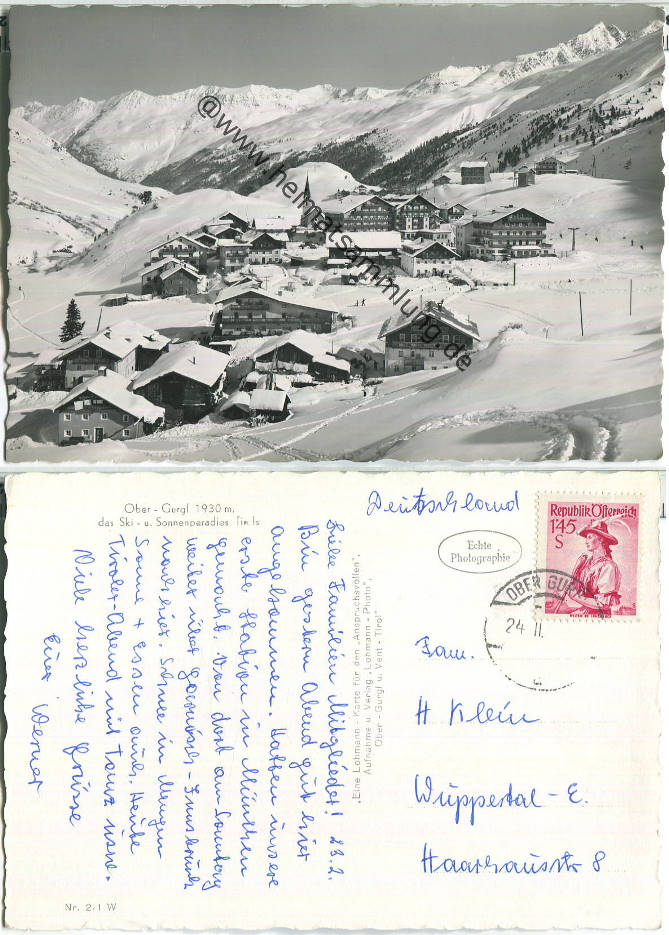 @www.heimatsammlung.de
Ober - Gurgl 1930 m,
das Ski - u. Sonnenparadies Tirols
Liebe Familien Mitglieder! 23.2.
Bin gestern Abend gut hier
angekommen. Hatten unsere
erste Station in München
gemacht. Von dort am Sonntag
weiter über Garmisch - Innsbruck
nach hier. Schnee in Mengen
Sonne + Essen auch. Heute
Tiroler-Abend mit Tanz usw.
Viele herzliche Grüsse
Euer Werner
Nr. 2/1 W
"Eine Lohmann - Karte für den "Anspruchsvollen",
Aufnahme u. Verlag "Lohmann - Photo",
Ober - Gurgl u. Vent - Tirol"
Deutschland
Echte
Photographie
Republik Österreich
1'45
S
OBER GURGL
24 II.
Fam.
H Klein
Wuppertal - E.
Haarhausstr 8